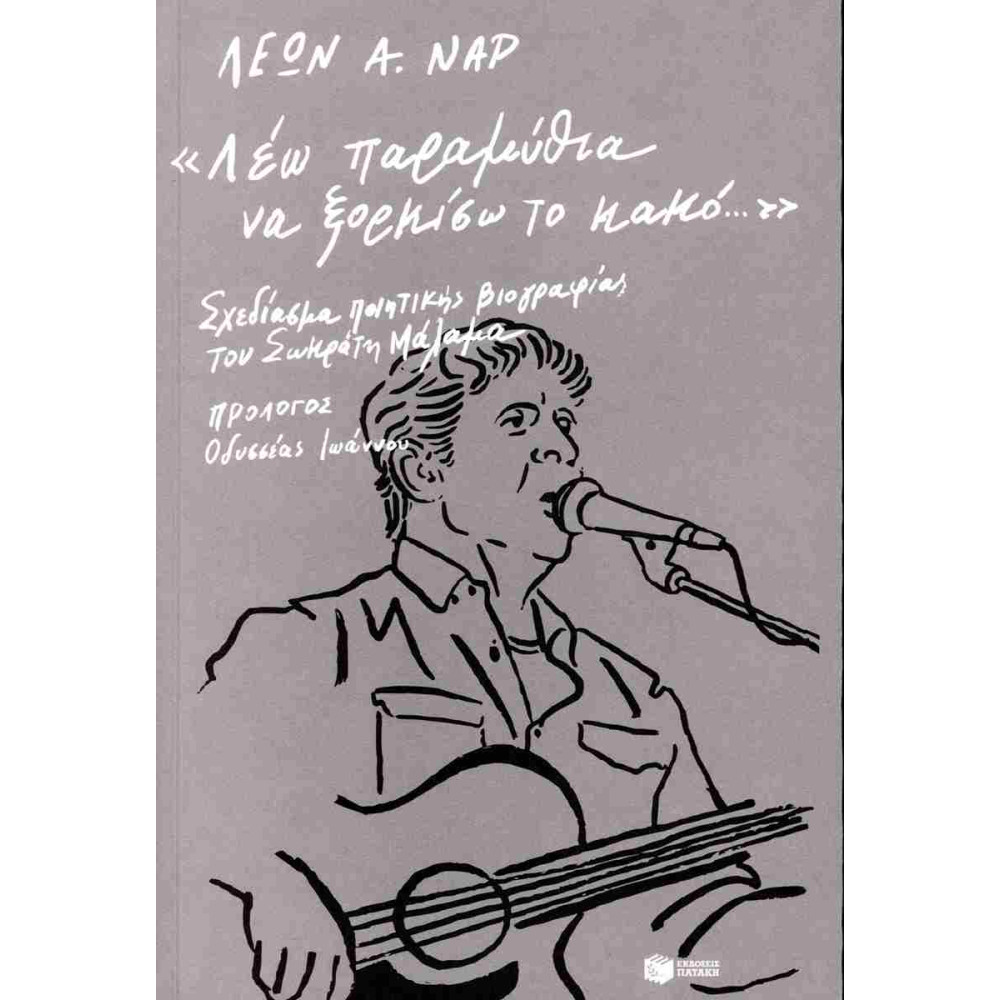 ΛΕΩΝ Α. ΝΑΡ
«Λέω παραμύθια
να ξορκίσω το κακό...»
Σχεδίασμα ποιητικής βιογραφίας
του Σωκράτη Μάλαμα
ΠΡΟΛΟΓΟΣ
Οδυσσέας Ιωάννου
ΕΚΔΟΣΕΙΣ
ΠΑΤΑΚΗ